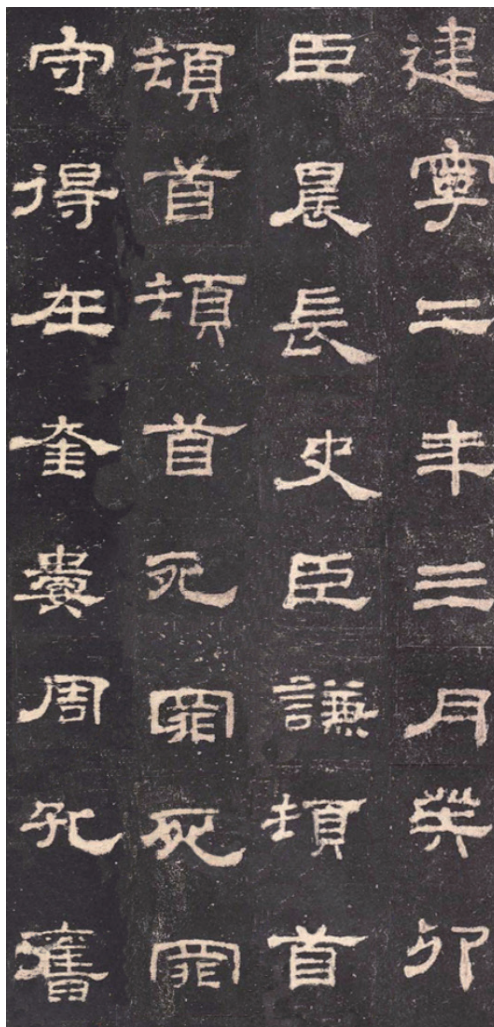 建寧二年三月癸卯
臣晨長史臣謙頓首
頓首頓首死罪死罪
守得在奎婁周孔舊